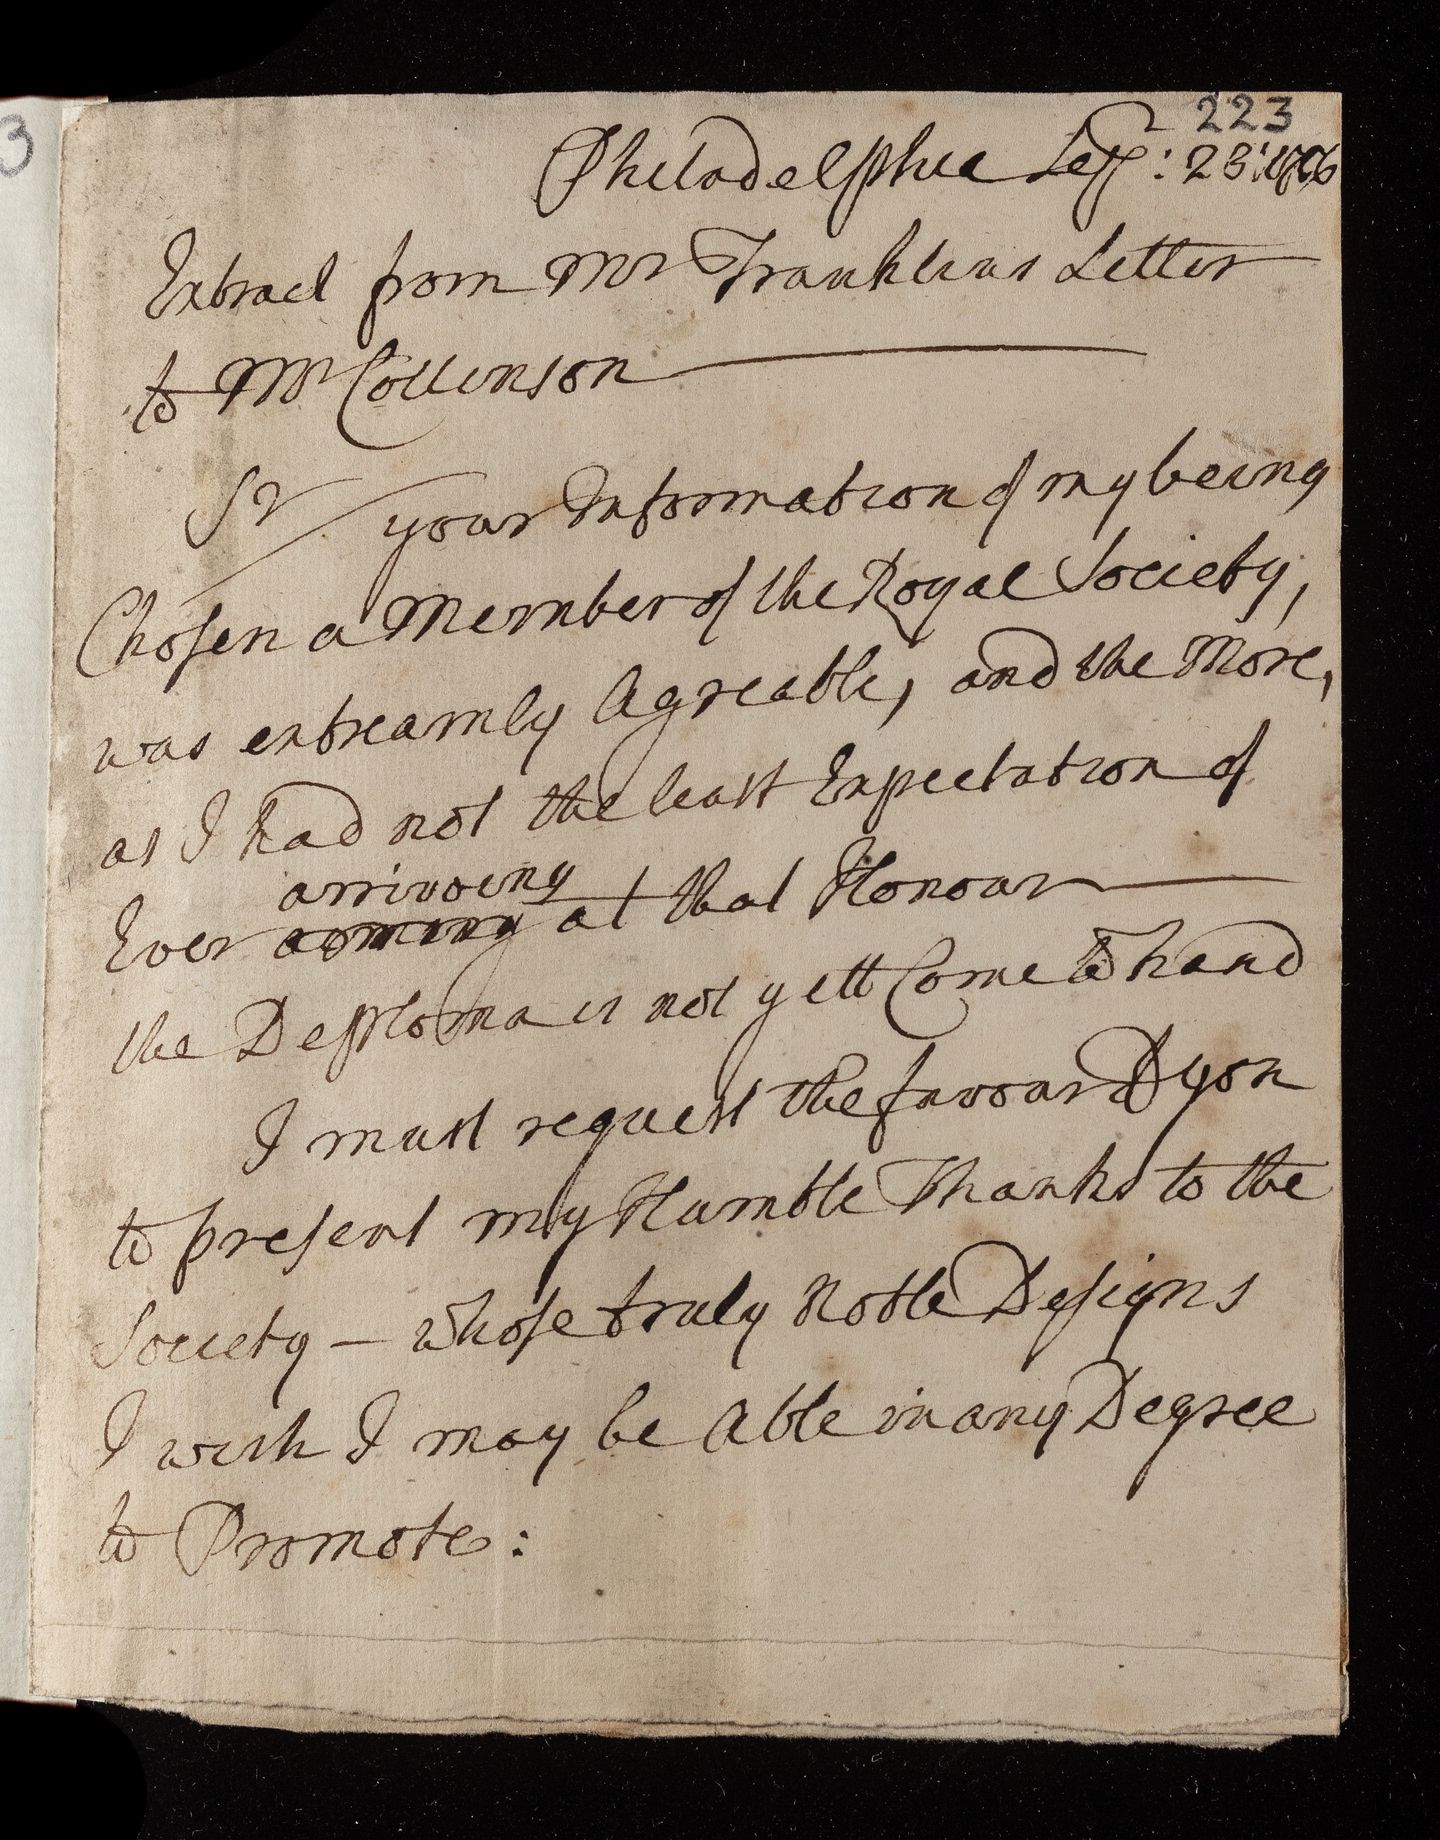 223
3
Philadelphia Sepr: 23: 1756
Extract from Mr Franklins Letter
to Mr Collinson
Sr your Information of my being
Chosen a Member of the Royal Society,
was extreamly Agreable, and the More,
as I had not the least Expectation of
arriveing
Ever at that Honour
the Deploma is not yett Come to hand
I must request the favour of you
to present my Humble Thanks to the
Society — whose truly Noble Designs
I wish I may be Able in any Degree
to Promote: